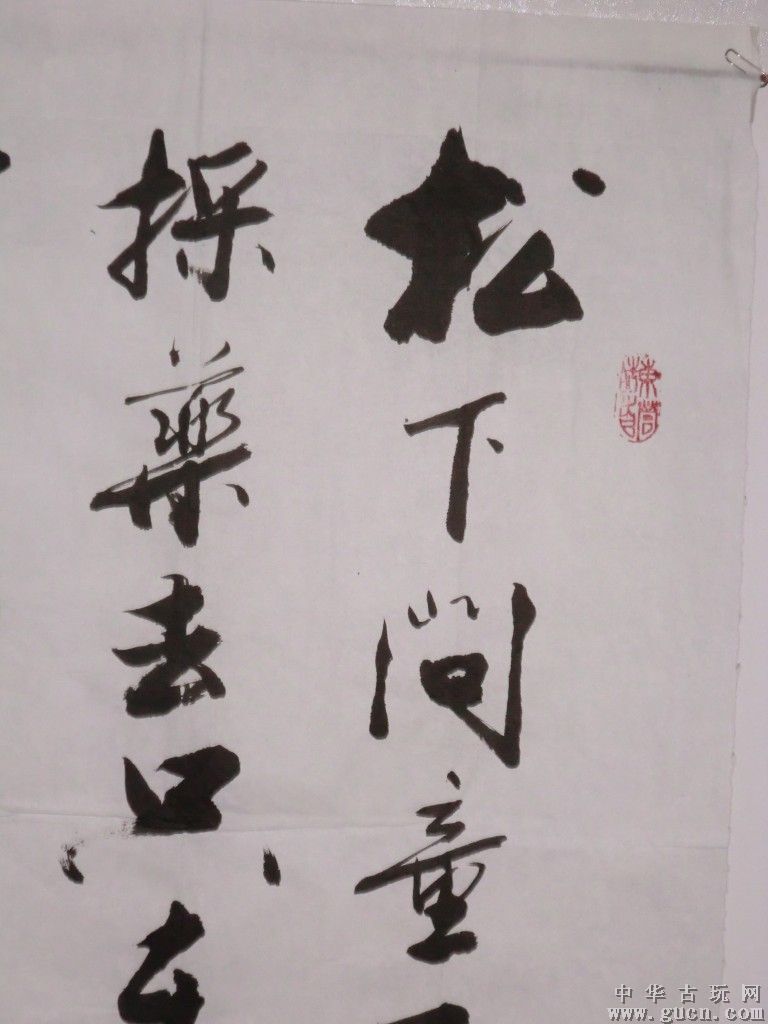 松下問童
採藥去只在
中华古玩网
www.gucn.com